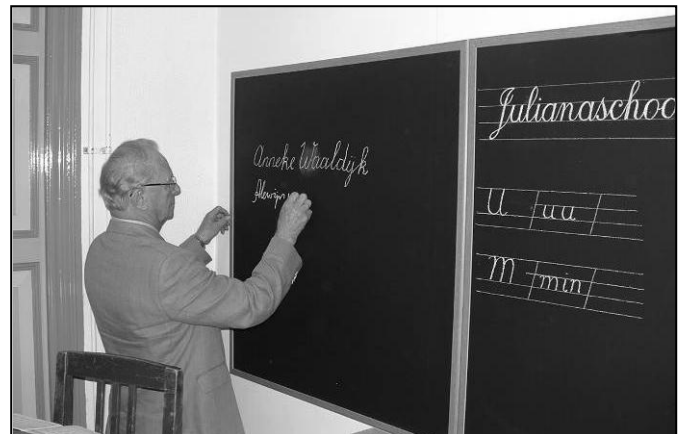 Anneke Waaldijk
Julianaschoo
U uu
M min